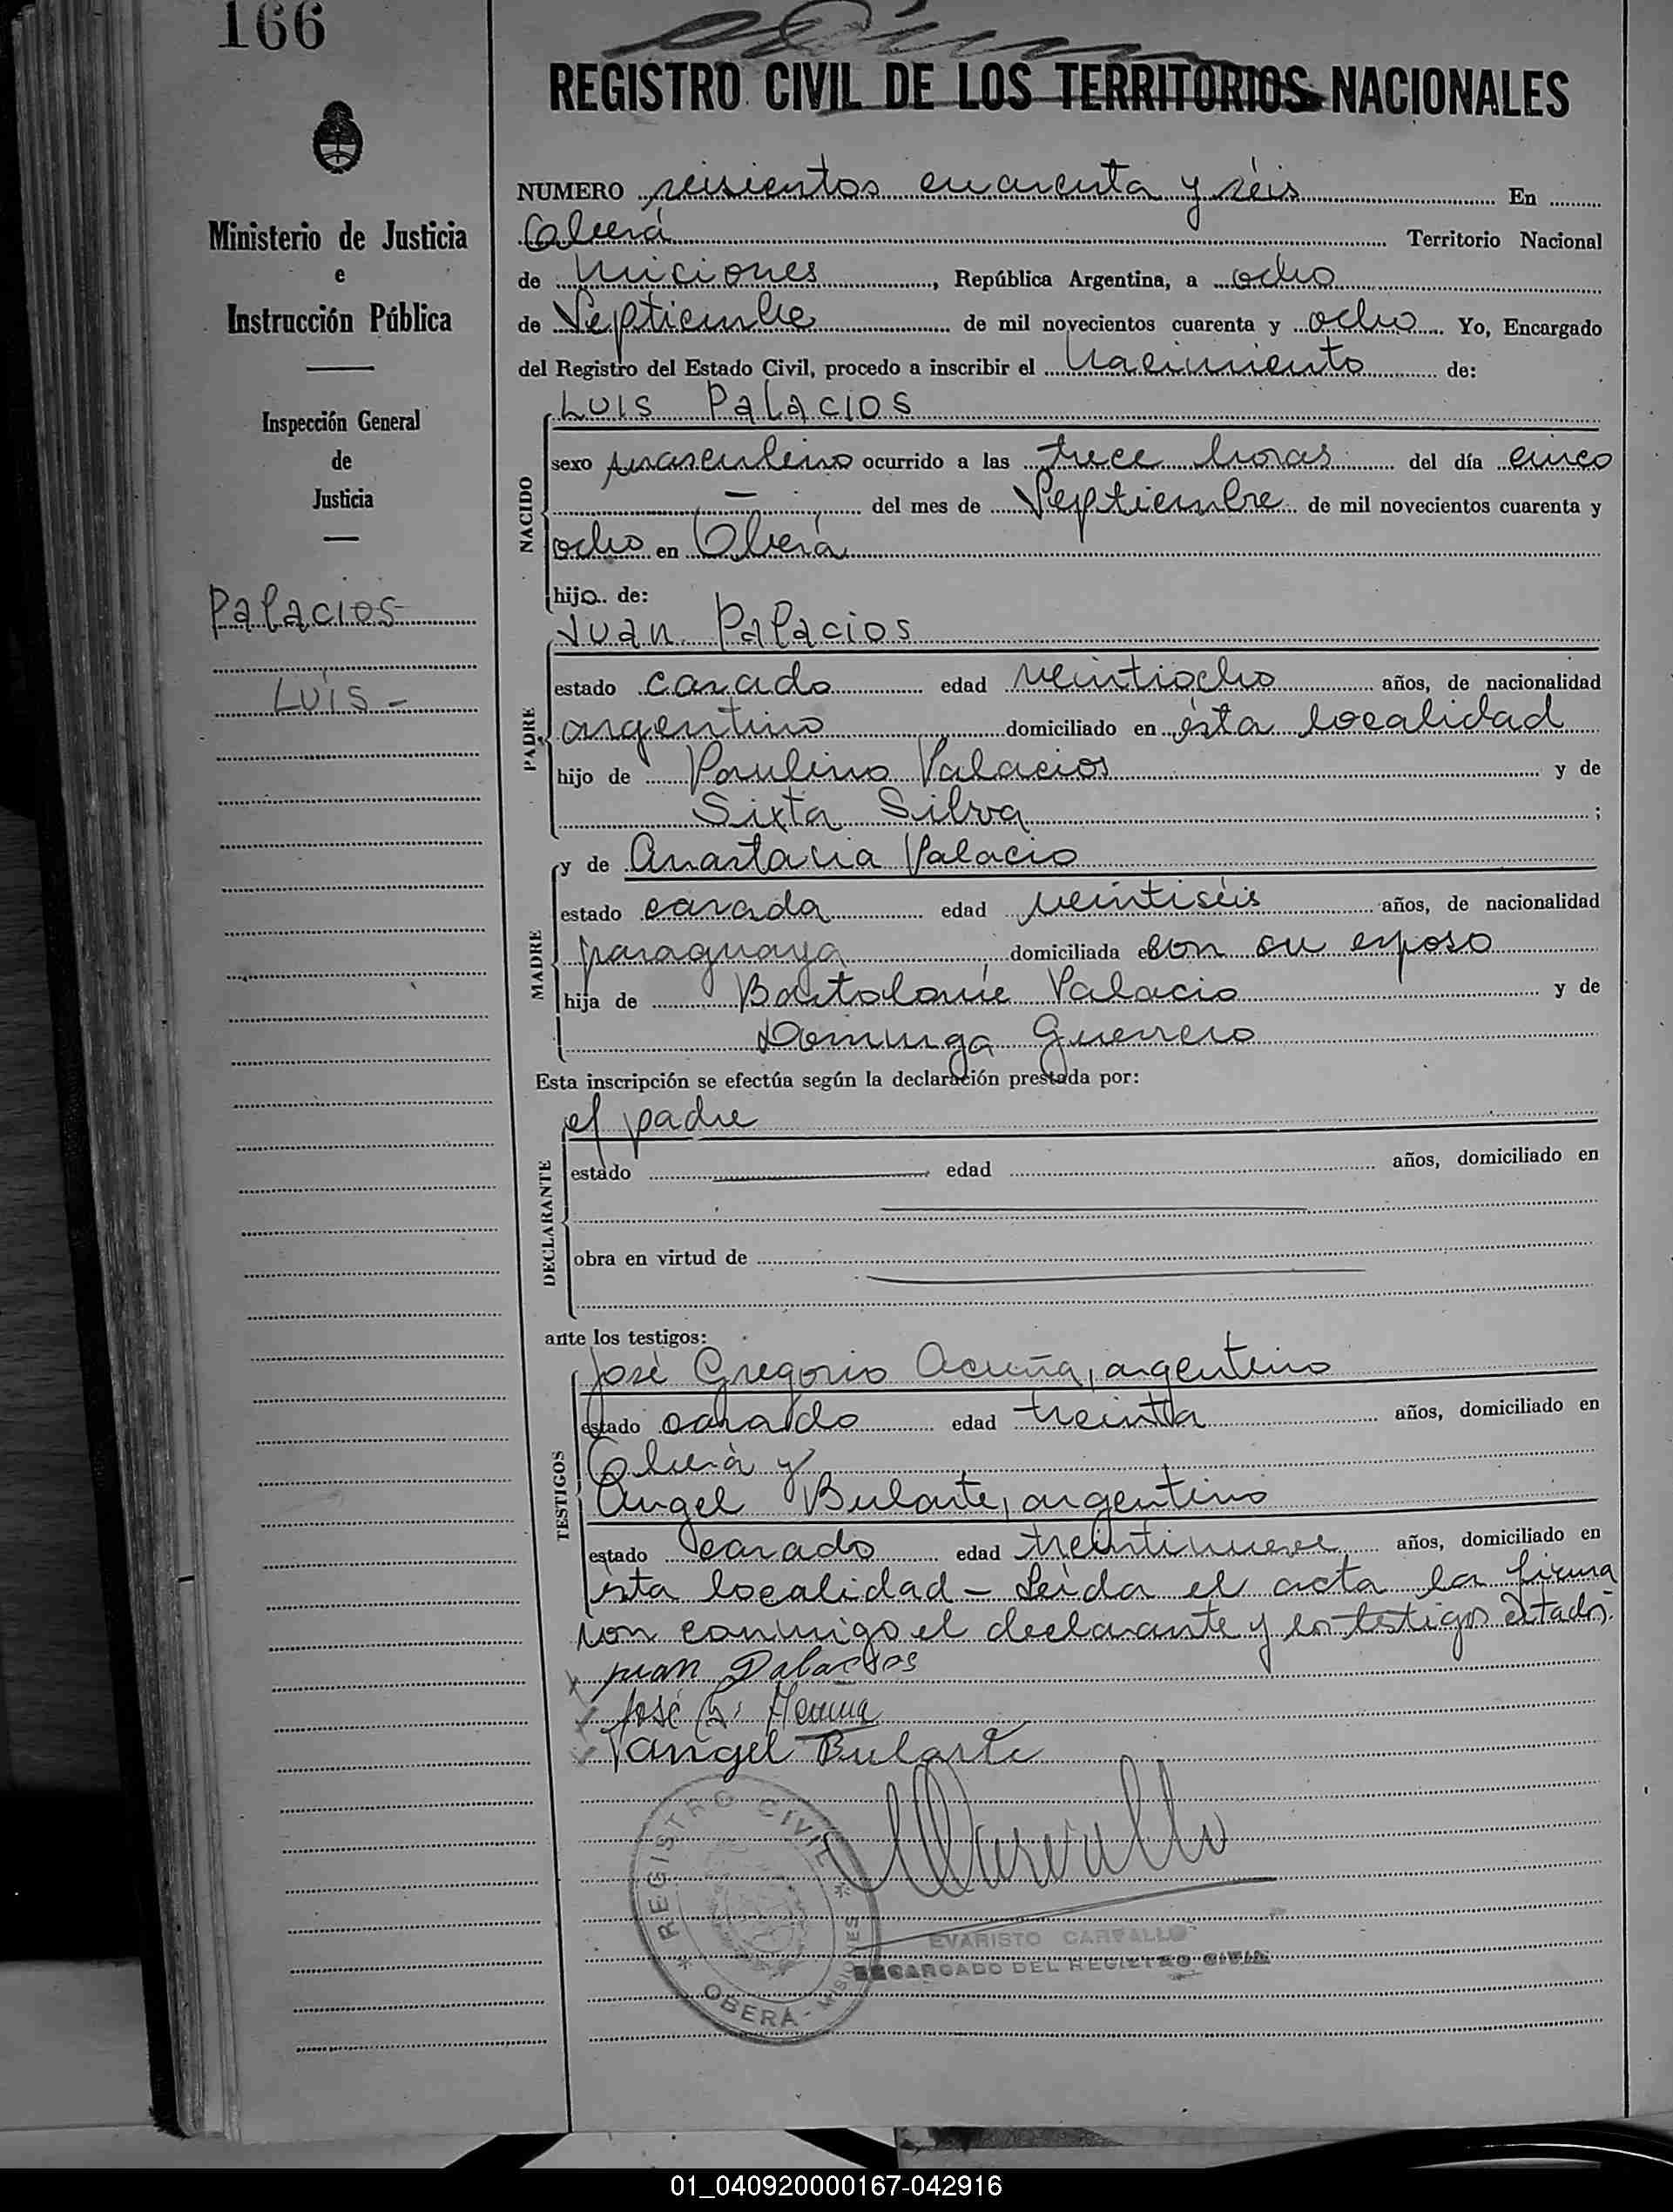 166
REGISTRO CIVIL DE LOS TERRITORIOS NACIONALES
Ministerio de Justicia
e
Instrucción Pública
Inspección General
de
Justicia
Palacios
Luis -
NUMERO seisientos cuarenta y séis En
Oberá Territorio Nacional
de Miciones, República Argentina, a ocho
de Septiembre de mil novecientos cuarenta y ocho. Yo, Encargado
del Registro del Estado Civil, procedo a inscribir el Nacimiento de:
NACIDO
LUIS PALACIOS
sexo masculino ocurrido a las trece horas del día cinco
— del mes de Septiembre de mil novecientos cuarenta y
ocho en Oberá
hijo de:
PADRE
Juan Palacios
estado casado edad veintiocho años, de nacionalidad
argentino domiciliado en ésta localidad
hijo de Paulino Palacios y de
Sixta Silva ;
MADRE
y de Anastacia Palacio
estado casada edad veintiséis años, de nacionalidad
paraguaya domiciliada con su esposo
hija de Bartolomé Palacio y de
Dominga Guerrero
Esta inscripción se efectúa según la declaración prestada por:
DECLARANTE
el padre
estado edad años, domiciliado en
obra en virtud de
ante los testigos:
TESTIGOS
José Gregorio Acuña, argentino
estado casado edad treinta años, domiciliado en
Oberá y
Angel Bularte, argentino
estado casado edad treintinueve años, domiciliado en
ésta localidad - Leída el acta la firma
ron conmigo el declarante y los testigos citados.
Juan Palacios
José G. Acuña
Angel Bularte
REGISTRO CIVIL
OBERÁ - MISIONES
EVARISTO CARVALLO
ENCARGADO DEL REGISTRO CIVIL
01_040920000167-042916